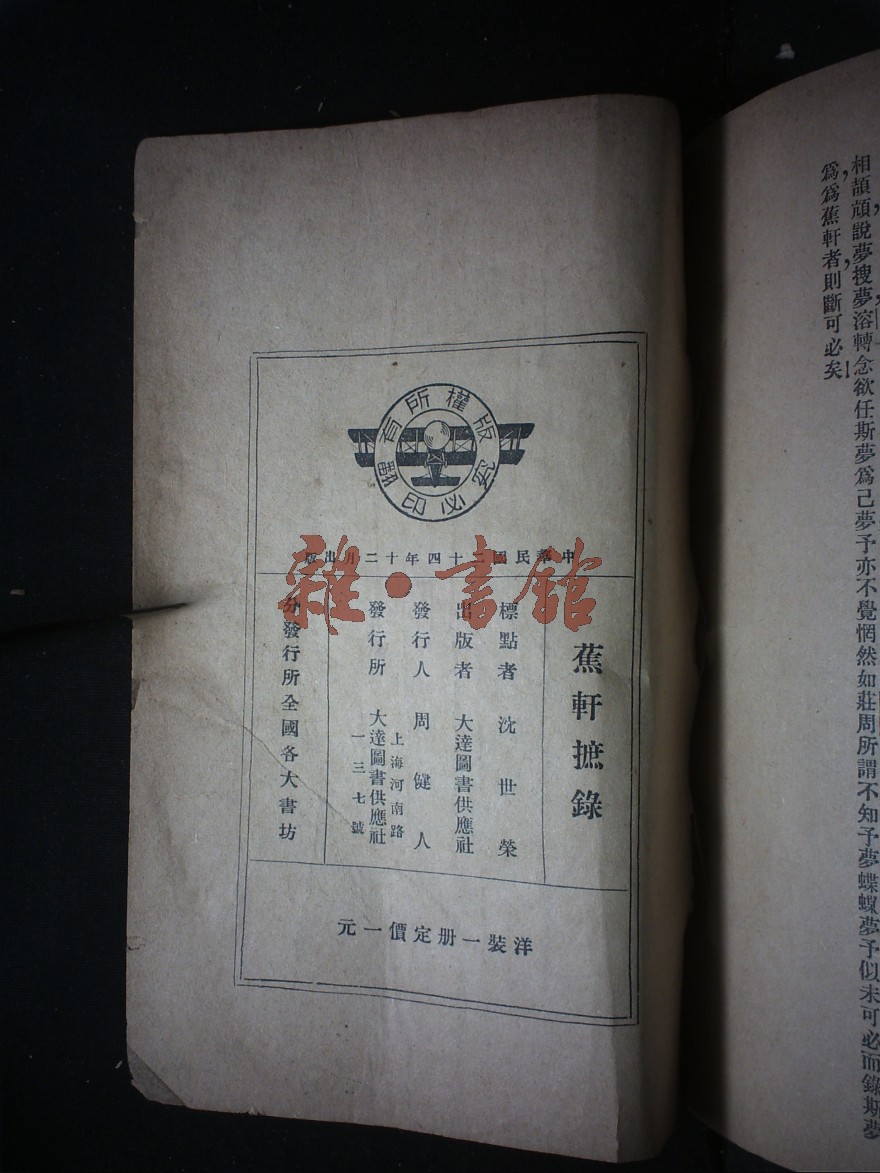 相頡頏說夢搜夢溶轉念欲任斯夢爲己夢予亦不覺惘然如莊周所謂不知予夢蝶蝶夢予似未可必而錄斯夢
爲爲蕉軒者則斷可必矣
版權所有
翻印必究
中華民國二十四年十二月出版
蕉軒摭錄
標點者 沈世榮
出版者 大達圖書供應社
發行人 周健人
發行所 大達圖書供應社
上海河南路
一三七號
分發行所全國各大書坊
洋裝一册定價一元
雜·書館